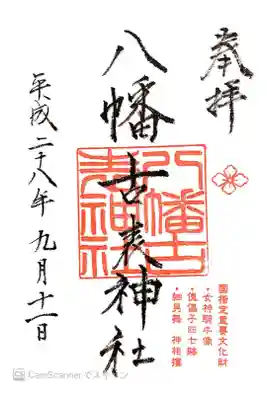 奉拝
国指定重要文化財
・女神騎牛像
・傀儡子四七躰
・細男舞 神相撲
八幡古表神社
八幡古表神社
平成二十八年九月十一日
CamScannerでスキャン